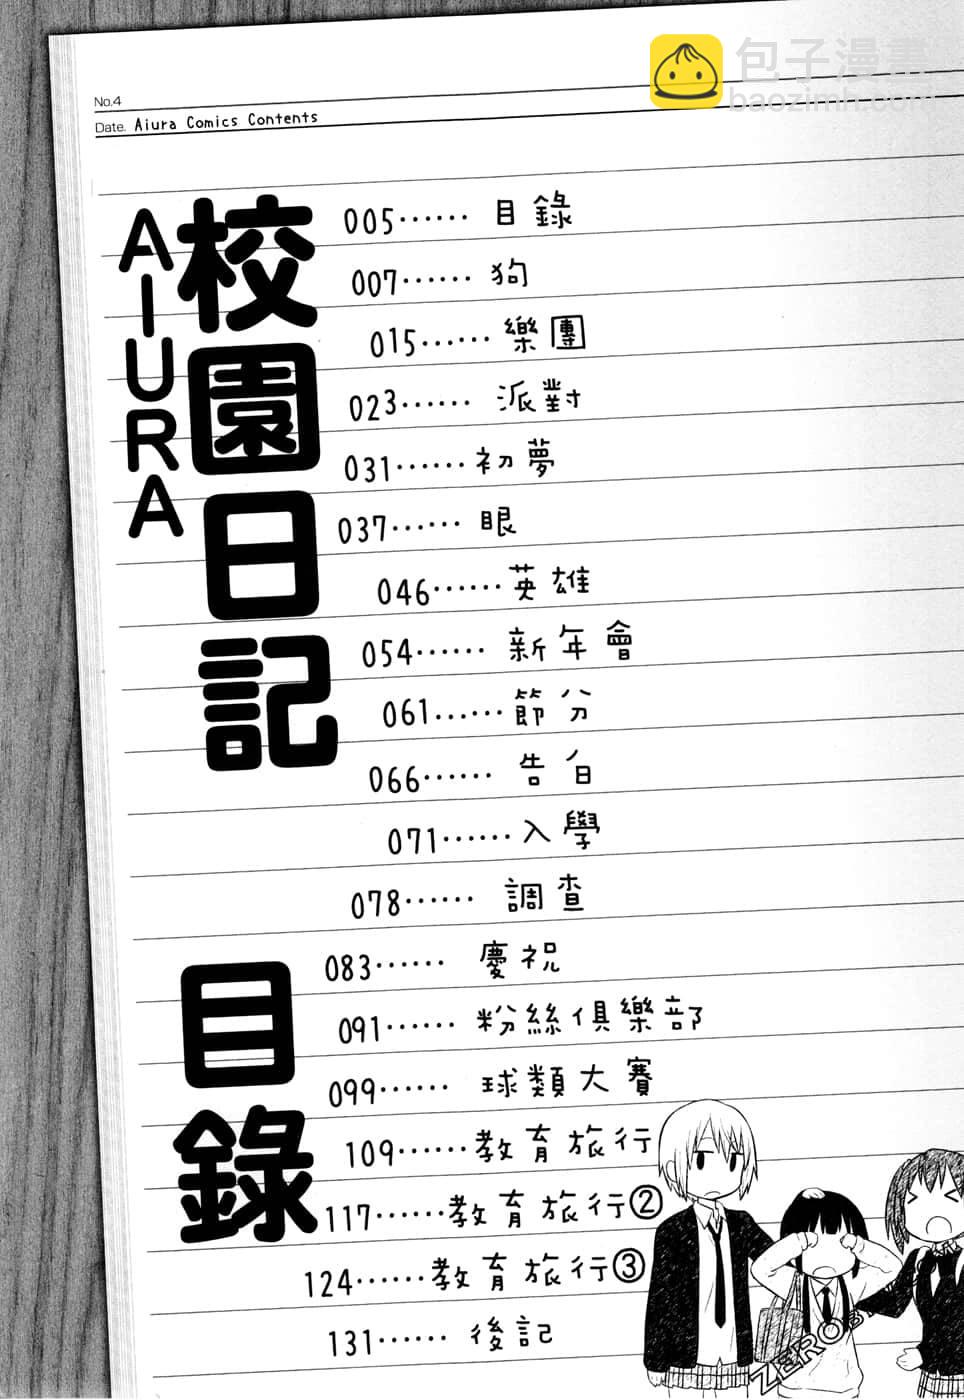 包子漫畫
baozimh.com
No.4
Date. Aiura Comics Contents
AIURA
校園日記
目錄
005…… 目錄
007…… 狗
015…… 樂團
023…… 派對
031…… 初夢
037…… 眼
046…… 英雄
054…… 新年會
061…… 節分
066…… 告白
071…… 入學
078…… 調查
083…… 慶祝
091…… 粉絲俱樂部
099…… 球類大賽
109…… 教育旅行
117…… 教育旅行②
124…… 教育旅行③
131…… 後記